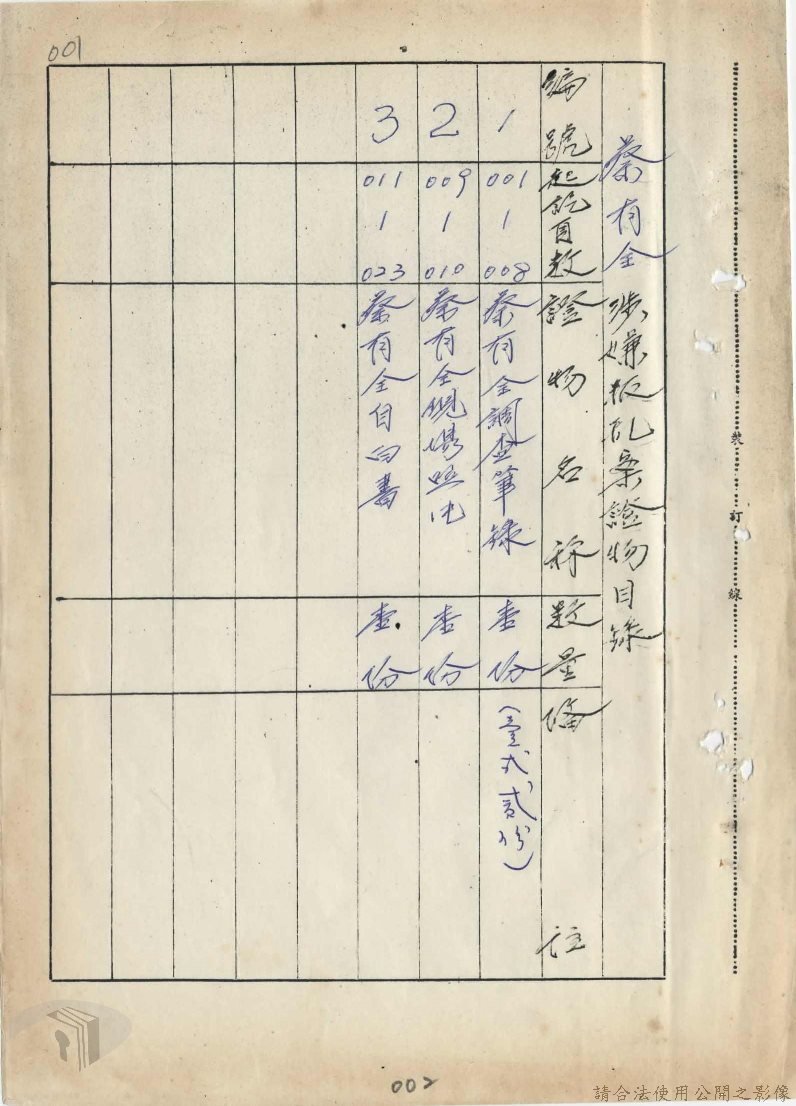 001
蔡有全涉嫌叛乱案證物目錄
編號 起訖頁数 證物名称 数量 備註
1 001 | 008 蔡有全調查筆錄 壹份 (壹式貳份)
2 009 | 010 蔡有全現場照片 壹份
3 011 | 023 蔡有全自白書 壹份
裝訂線
002
請合法使用公開之影像